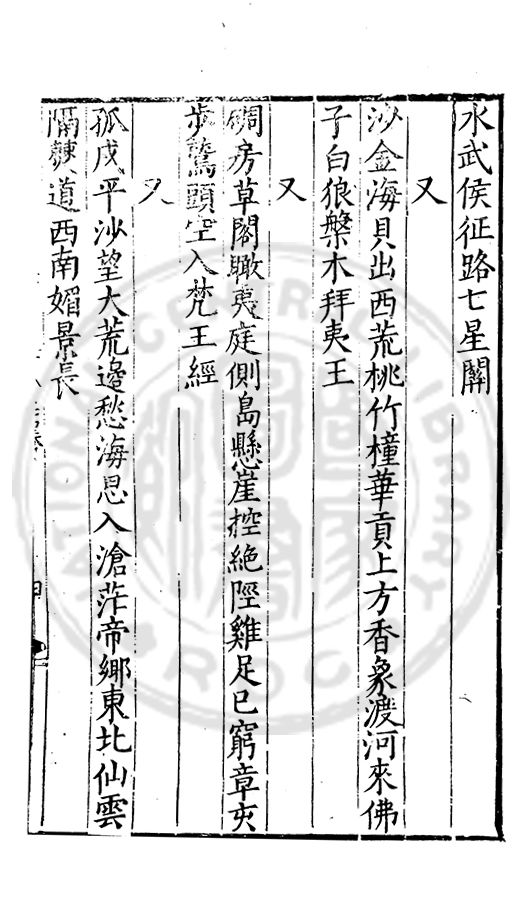 水武侯征路七星關
又
沙金海貝出西荒桃竹橦華貢上方香象渡河來佛
子白狼槃木拜夷王
又
碉房草閣瞰夷庭側島懸崖控絶陘雞足已窮章亥
步鷲頭空入梵王經
又
孤戍平沙望大荒邊愁海思入滄茫帝鄉東北仙雲
隔僰道西南媚景長